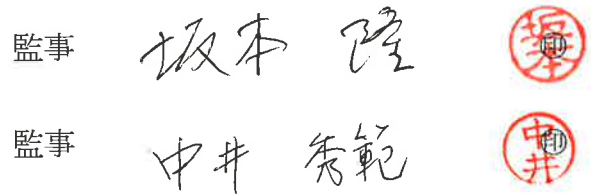 監事 坂本 隆 ㊞
監事 中井 秀範 ㊞